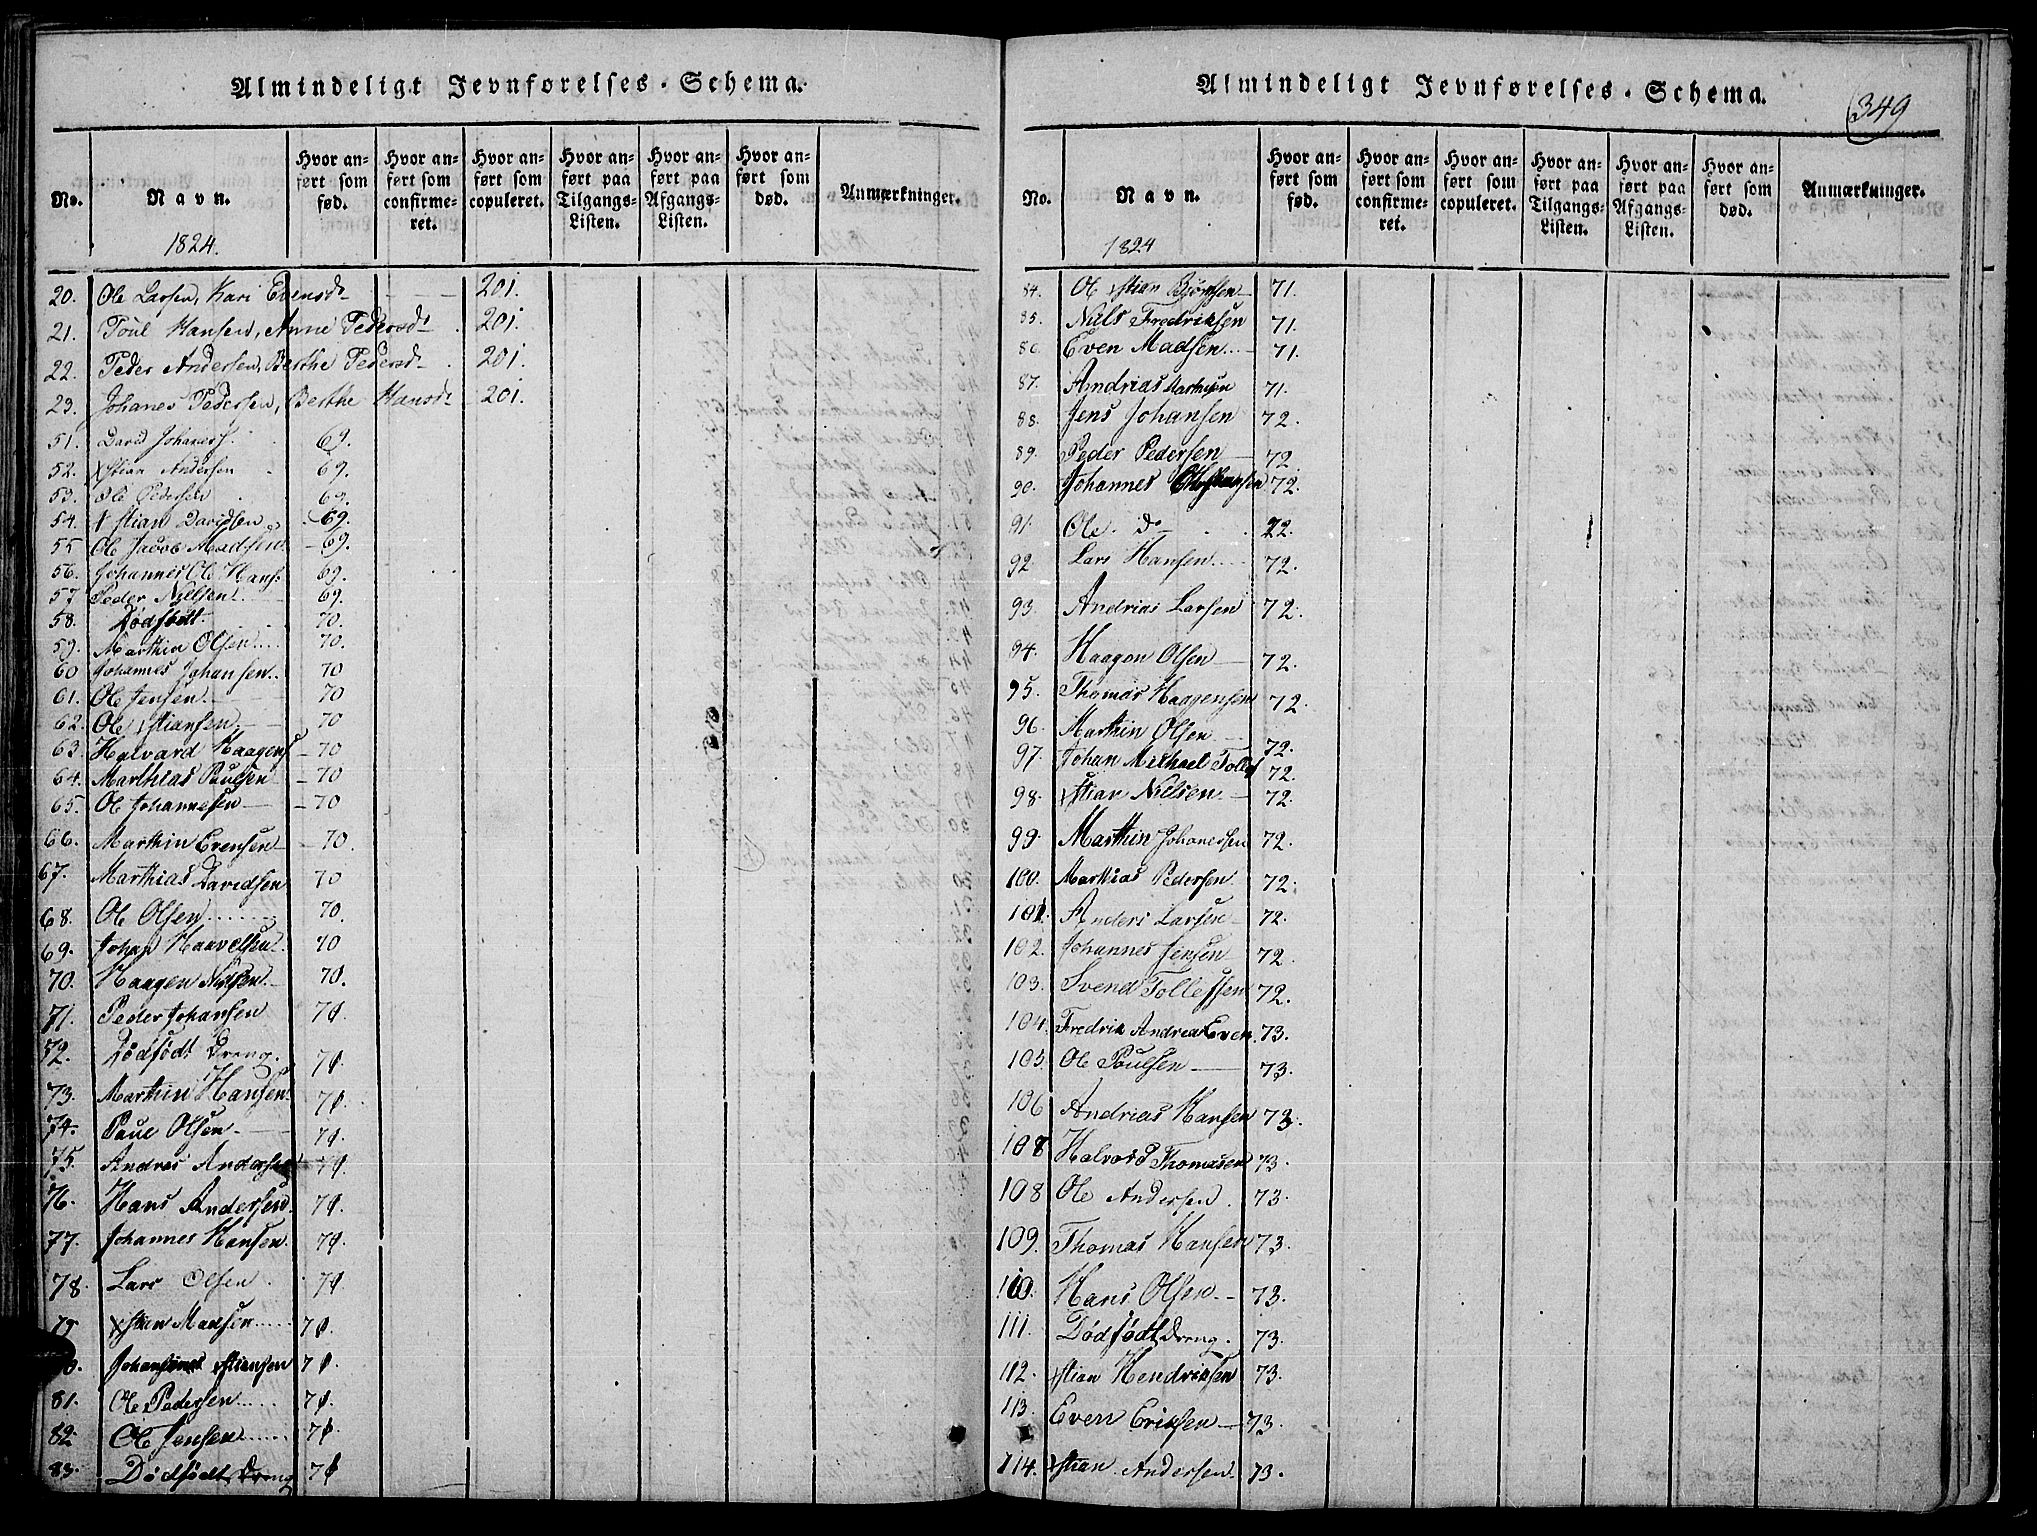 Almindeligt Jevnførelses-Schema.
No. Navn. Hvor anført som fød. Hvor anført som confirmeret. Hvor anført som copuleret. Hvor anført paa Tilgangs-Listen. Hvor anført paa Afgangs-Listen. Hvor anført som død. Anmærkninger.
1824.
20. Ole Larsen, Kari Evensd 201.
21. Poul Hansen, Anne Pedersd 201.
22. Peder Andersen, Berthe Pedersd 201.
23. Johanes Pedersen, Berthe Hansd 201.
51. David Johanesf. 69.
52. Xstian Andersen 69.
53. Ole Pedersen 69.
54. Xstian Davidsen 69.
55 Ole Jacob Madsen 69.
56. Johannes Ol. Hans. 69.
57 Peder Nielsen 69.
58. Dødfødt 70.
59. Marthin Olsen 70.
60 Johannes Johansen 70
61. Ole Jensen 70
62. Ole Xstiansen 70
63. Halvard Haagens 70
64. Marthias Paulsen 70
65. Ole Johannesen 70
66. Marthin Evensen 70.
67. Marthias Davidsen 70
68. Ole Olsen 70.
69. Johan Haavelsen 70
70. Haagen Nielsen 70.
71. Peder Johansen 71
72. Dødfødt Dreng. 71.
73. Marthin Hansen 71.
74. Paul Olsen 71.
75. Andres Andersen 71.
76. Hans Andersen 71.
77. Johannes Hansen. 71.
78. Lars Olsen 71.
79 Xstian Madsen 71.
Xstiansen 71.
81. Ole Pedersen 71.
82 Ole Jensen 71.
83. Dødfødt Dreng 71
Almindeligt Jevnførelses-Schema.
349
No. Navn. Hvor anført som fød. Hvor anført som confirmeret. Hvor anført som copuleret. Hvor anført paa Tilgangs-Listen. Hvor anført paa Afgangs-Listen. Hvor anført som død. Anmærkninger.
1824
84. Ole Xstian Bjørnsen 71.
85. Niels Fredriksen 71.
86. Even Madsen 71.
87. Andrias Mathisen 71.
88. Jens Johansen 72.
89. Peder Pedersen 72
90. Johannes Christiansen 72.
91. Ole. Do 72.
92. Lars Hansen 72.
93. Andrias Larsen 72.
94. Haagon Olsen 72.
95. Thomas Haagensen 72.
96. Marthin Olsen 72.
97. Johan Michael Tollef 72.
98. Xstian Nielsen 72.
99. Marthin Johanessen 72.
100. Marthias Pedersen 72.
101. Anders Larsen 72.
102. Johannes Jensen 72.
103. Svend Tollefsen 72.
104. Fredrik Andreas Even 73.
105. Ole Poulsen 73.
106 Andrias Hansen 73.
107 Halvord Thomasen 73.
108 Ole Andersen. 73.
109. Thomas Hansen 73.
110. Hans Olsen 73.
111. Dødfødt Dreng. 73.
112. Xstian Hendriksen 73.
113. Even Eriksen 73.
114. Xstian Andersen 73.